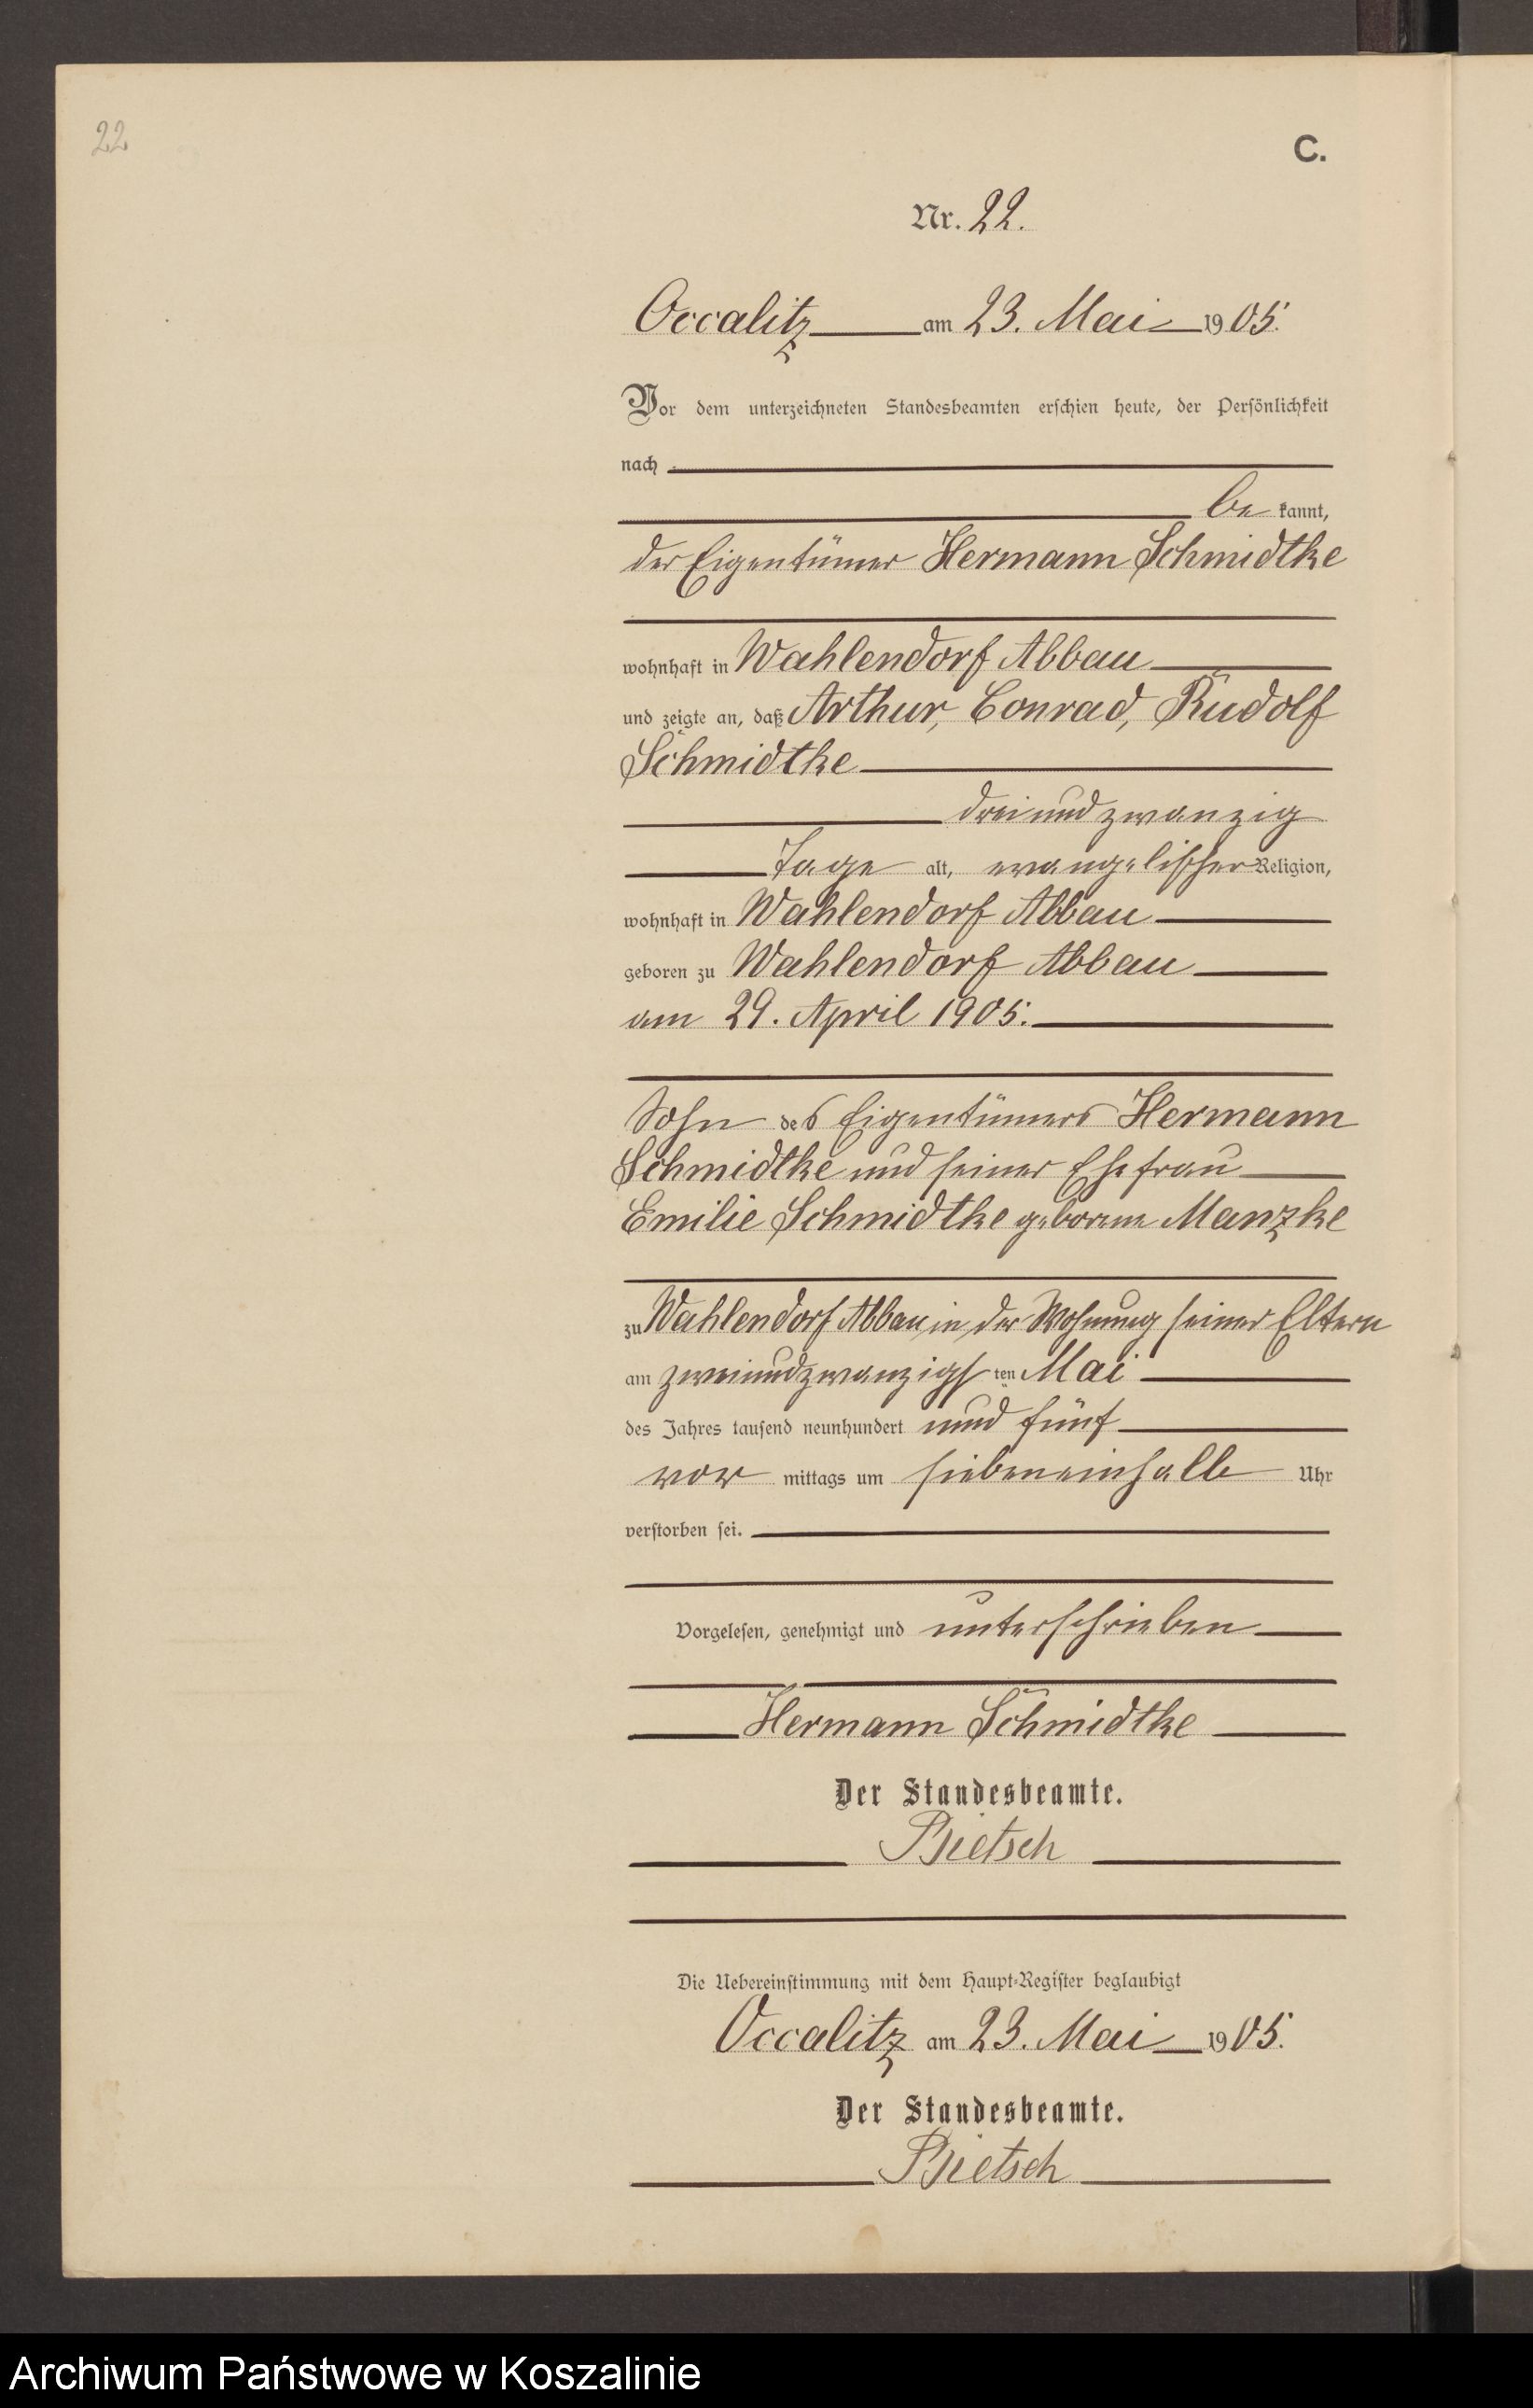 22
C.
Nr. 22.
Occalitz am 23. Mai 1905.
Vor dem unterzeichneten Standesbeamten erschien heute, der Persönlichkeit
nach
be kannt,
der Eigentümer Hermann Schmidtke
wohnhaft in Wahlendorf Abbau
und zeigte an, daß Arthur, Conrad, Rudolf
Schmidtke
dreiundzwanzig
Tage alt, evangelischer Religion,
wohnhaft in Wahlendorf Abbau
geboren zu Wahlendorf Abbau
am 29. April 1905.
Sohn des Eigentümers Hermann
Schmidtke und seiner Ehefrau
Emilie Schmidtke geborene Manzke
zu Wahlendorf Abbau, in der Wohnung seiner Eltern
am zweiundzwanzigsten Mai
des Jahres tausend neunhundert und fünf
vor mittags um siebeneinhalb Uhr
verstorben sei.
Vorgelesen, genehmigt und unterschrieben
Hermann Schmidtke
Der Standesbeamte.
Die Uebereinstimmung mit dem Haupt-Register beglaubigt
Occalitz am 23. Mai 1905.
Der Standesbeamte.
Archiwum Państwowe w Koszalinie